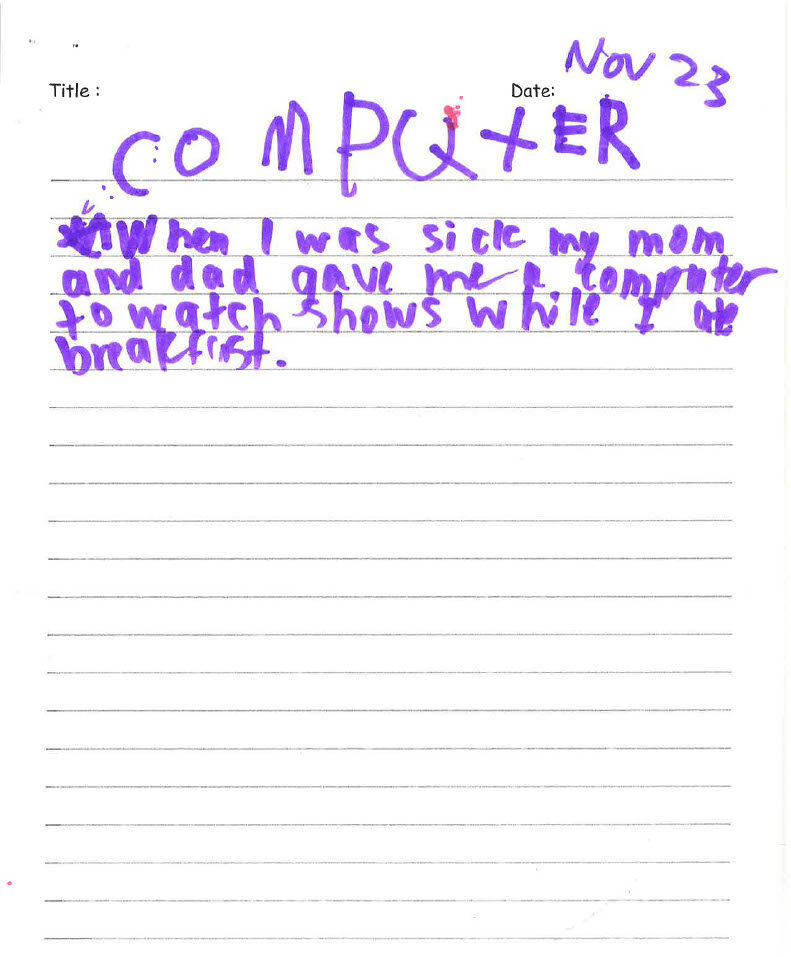 Nov 23
Title :
Date:
COMPUTER
When I was sick my mom
and dad gave me a computer
to watch shows while I ate
breakfist.